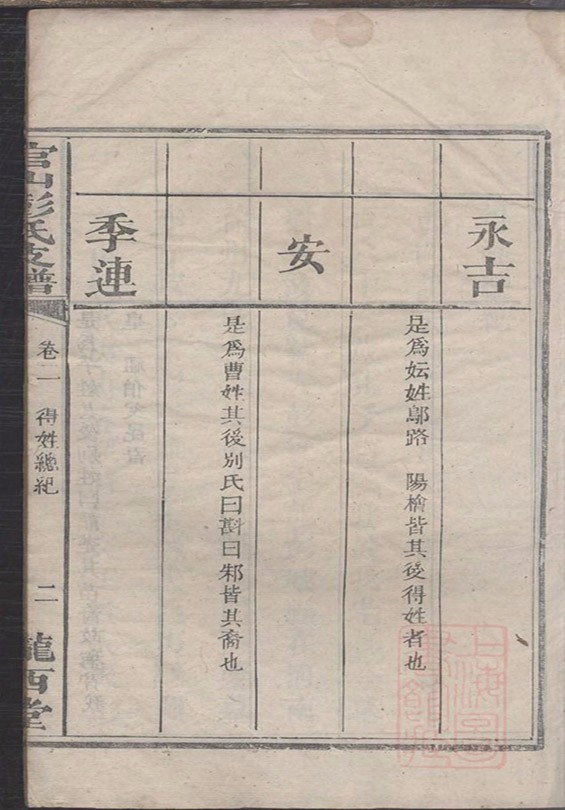 永吉
是爲妘姓鄔路 陽檜皆其後得姓者也
安
是爲曹姓其後別氏曰斟曰邾皆其裔也
季連
官山彭氏支譜
卷二 得姓總紀
二
隴西堂